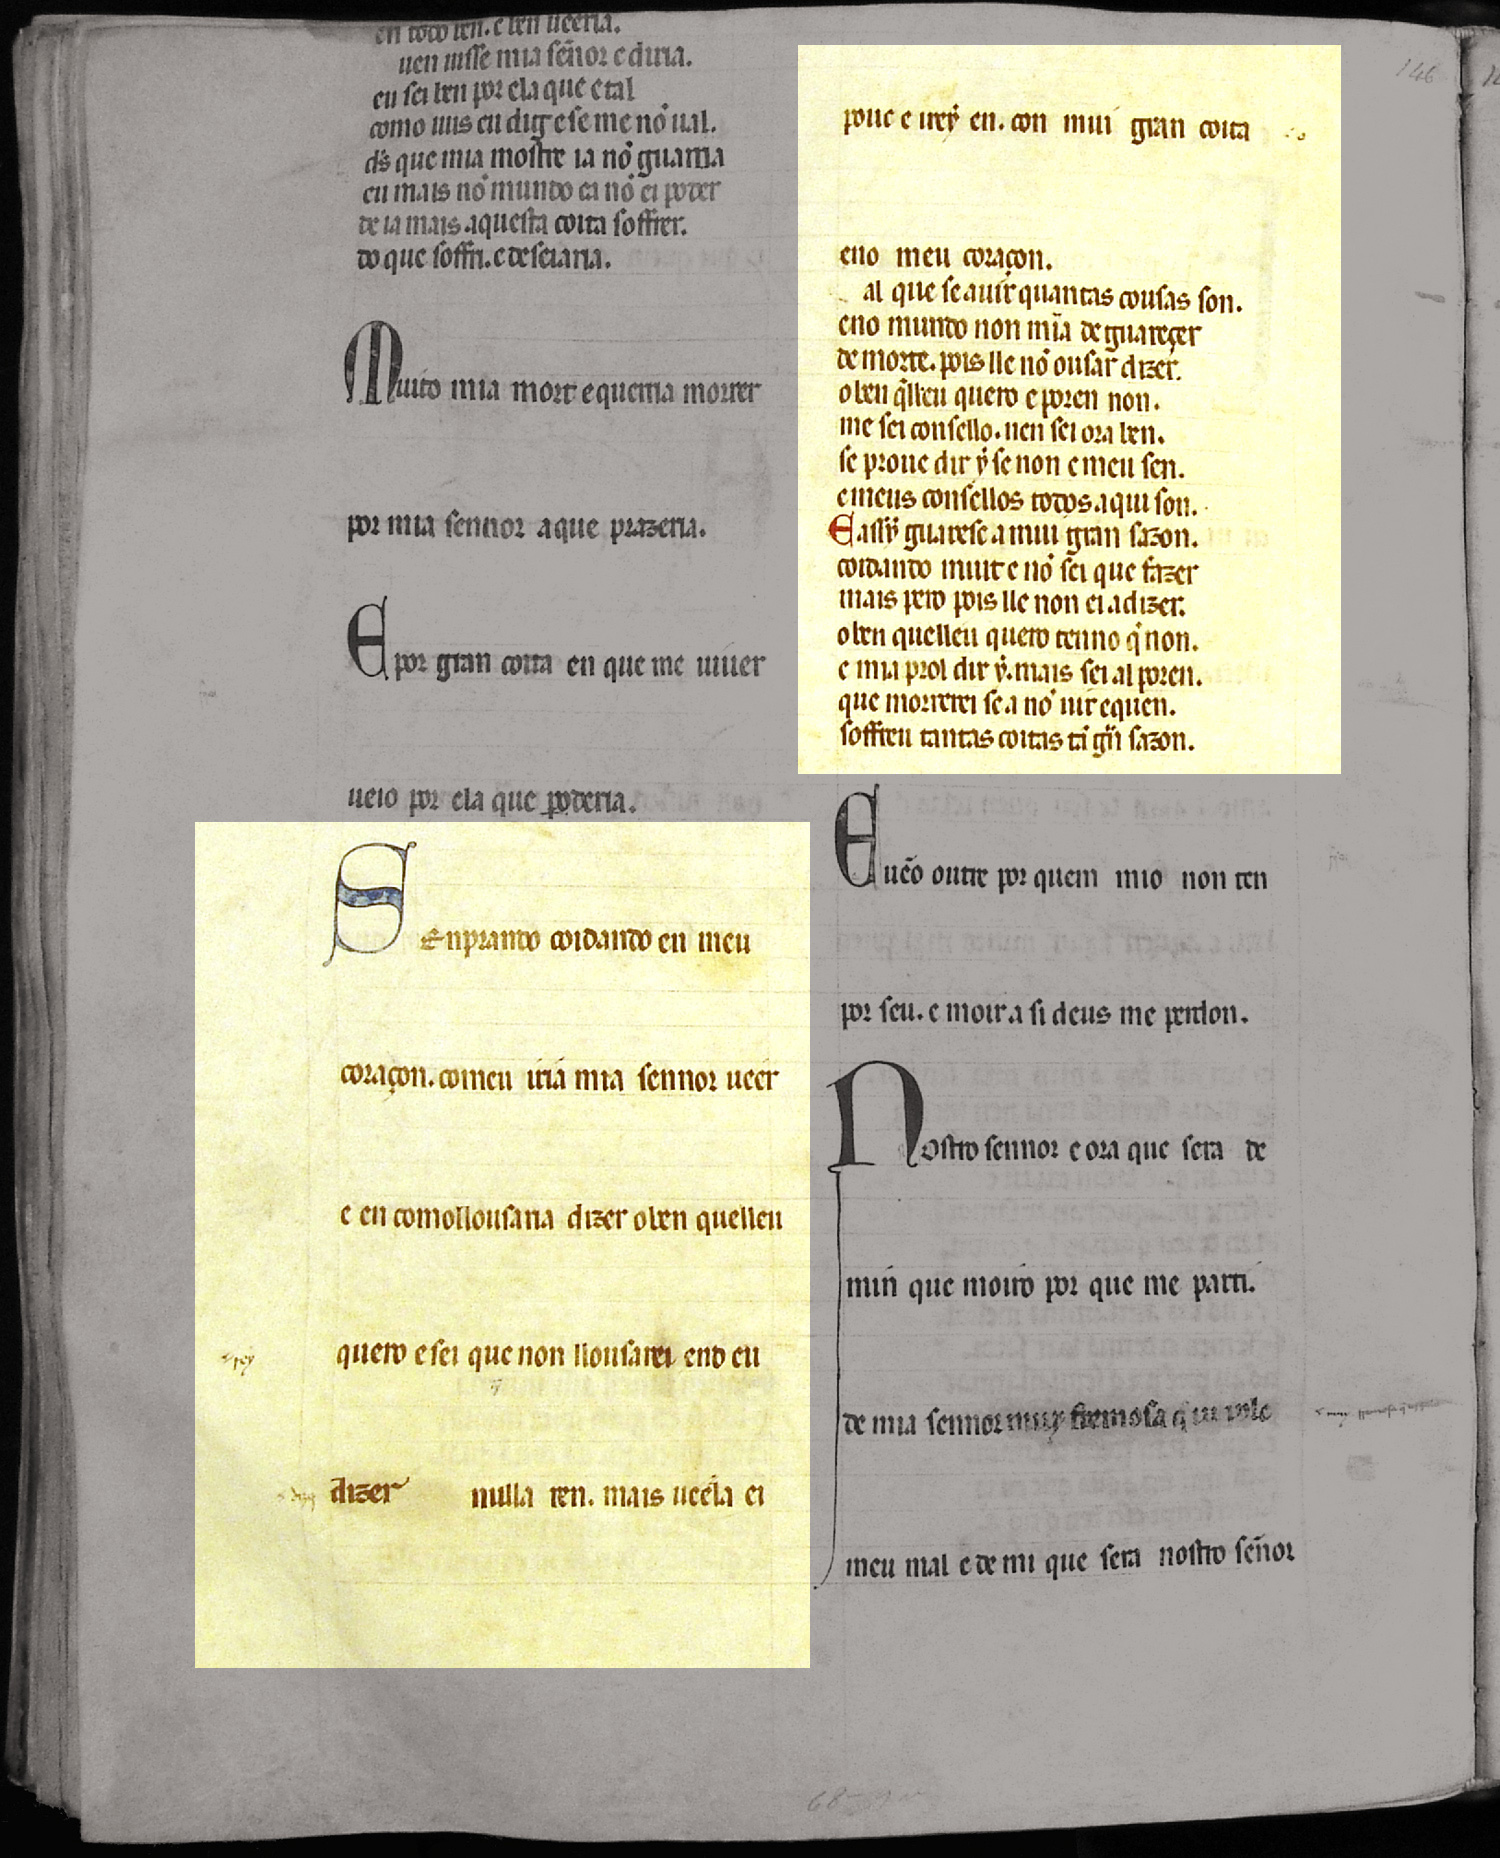 en todo ben. e ben ueeria.
uen uisse mia señor e diria.
eu sei ben por ela que e tal
como uus eu dig e se me nõ ual.
d̃s que mia mostre ia nõ guarria
eu mais nõ mundo ca nõ ei poder
de ia mais aquesta coita soffrer.
do que soffri. e deseiaria.
Muito mia mort e querria morrer
por mia sennor a que prazeria.
E por gran coita en que me uiuer
ueio por ela que poderia.
SEnprando coidando en meu
coraçon. comeu iria mia sennor ueer
e en comollousaria dizer o ben quelleu
quero e sei que non llousarei end eu
dizer nulla ren. mais ueela ei
pouc e irey en. con mui gran coita
eno meu coraçon.
al que se a uir quantas cousas son.
eno mundo non mia de guareçer
de morte. pois lle nõ ousar dizer.
o ben q̃lleu quero e poren non.
me sei consello. nen sei ora ben.
se proue dir ẏ se non e meu sen.
e meus consellos todos aqui son.
E assẏ guaresc a mui gran sazon.
coidando muit e nõ sei que fazer
mais pero pois lle non ei a dizer.
o ben quelleu quero tenno q̃ non.
e mia prol dir ẏ. mais sei al poren.
que morrerei se a nõ uir e quen.
soffreu tantas coitas tã gñ sazon.
E uẽo outre por quem mio non ten
por seu. e moira si deus me perdon.
Nostro sennor e ora que sera de
min que moiro por que me parti.
de mia sennor muy fremosa q̃
meu mal e de mi que sera nostro señor
146